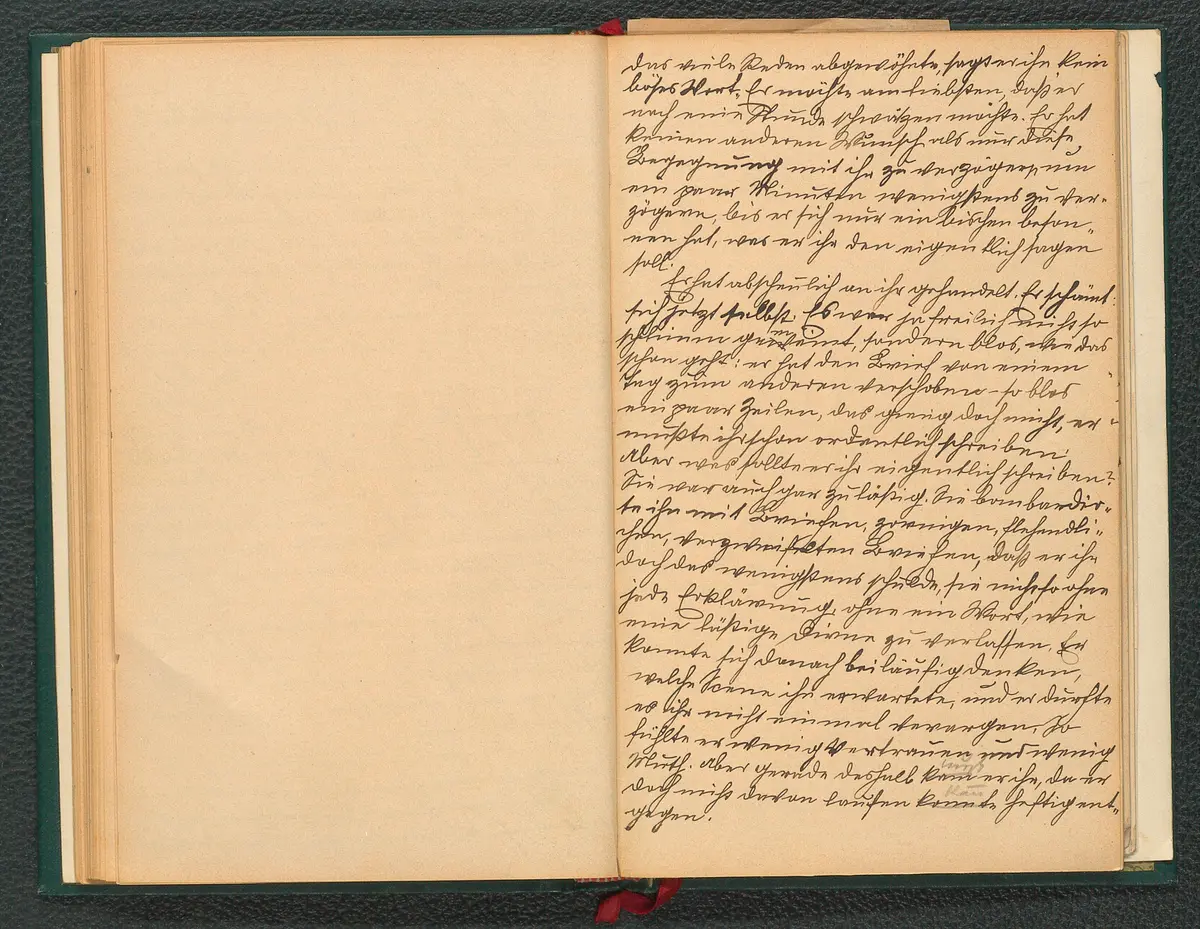 das viele Reden abgewöhnte, sagt er ihr kein
böses Wort. Er möchte am liebsten, daß er
noch eine Stunde schwätzen möchte. Er hat
keinen anderen Wunsch als nur diese
Begegnung mit ihr zu verzögern, um
ein paar Minuten wenigstens zu ver-
zögern, bis er sich nur ein bischen beson-
nen hat, was er ihr den eigentlich sagen
soll.
Er hat abscheulich an ihr gehandelt. Er schämt
sich jetzt selbst. Es war ja freilich nicht so
schlimm gemeint, sondern blos, wie das
schon geht: er hat den Brief von einem
Tag zum anderen verschoben – so blos
ein paar Zeilen, das gieng doch nicht, er
mußte ihr schon ordentlich schreiben.
Aber was sollte er ihr eigentlich schreiben?
Sie war auch gar zu lästig. Sie bombardir-
te ihn mit Briefen, zornigen, flehendli-
chen, verzweifelten Briefen, daß er ihr
doch das wenigstens schulde, sie nicht so ohne
jede Erklärung, ohne ein Wort, wie
eine lästige Dirne zu verlassen. Er
konnte sich danach beiläufig denken,
welche Scene ihn erwartete, und er durfte
es ihr nicht einmal verargen. So
fühlte er wenig Vertrauen und wenig
Muth. Aber gerade deshalb kam er ihr, da er
doch nicht davon laufen konnte heftig ent-
gegen.